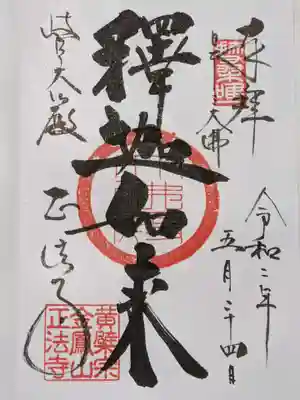 奉拝
大佛
令和二年
五月二十四日
釋迦如来
大仏殿
正法寺
黄檗宗
金鳳山
正法寺